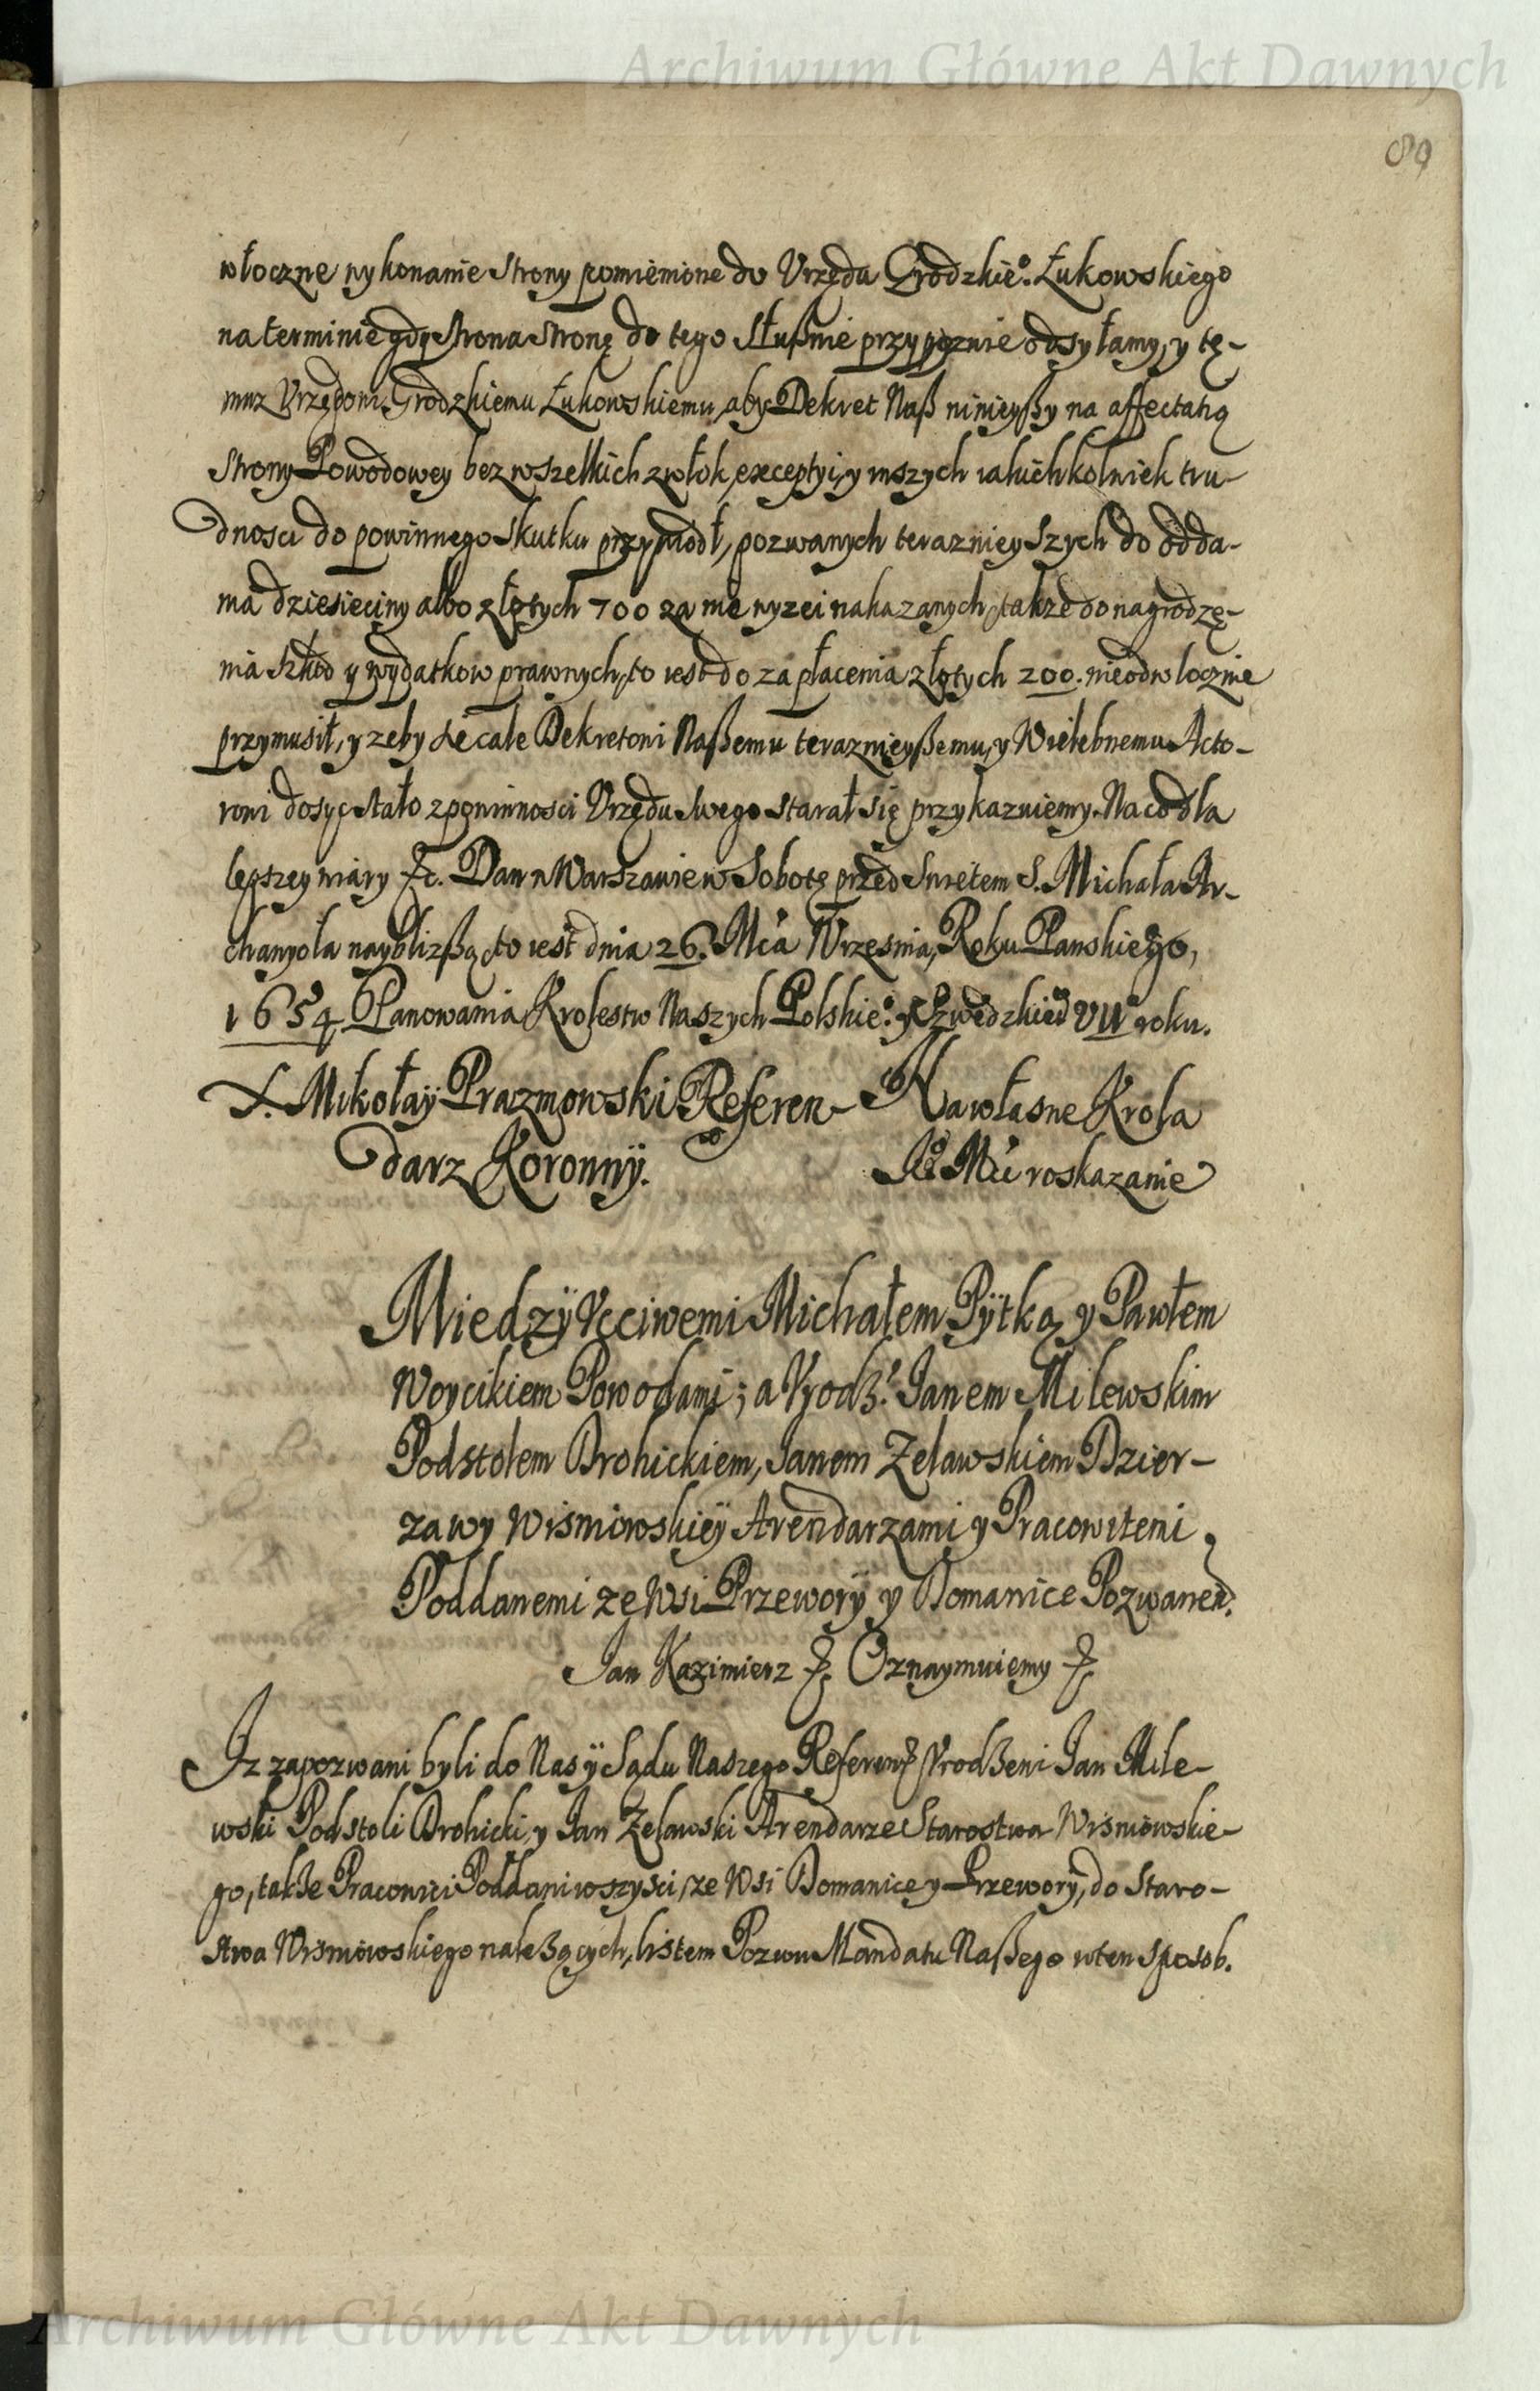 Archiwum Główne Akt Dawnych
89
włoczne wykonanie strony pomienione do Vrzędu Grodzkie.° Łukowskiego
na terminie gdy strona stronę do tego słußnie przypoznie odsyłamy, y tę-
muz Vrzędowi Grodzkiemu Łukowskiemu, aby Dekret Naß ninieyßy na affectatią
strony Powodowey bez wszelkich zwłok, exceptyi, y inszych iakichkolwiek tru-
dnosci do powinnego skutku przywiodł, pozwanych teraznieyszych do odda-
nia dziesieciny albo złotych 700 za nię wyzei nakazanych, takze do nagrodzę-
nia szkod y wydatkow prawnych, to iest do zapłacenia złotych 200. nieodwlocznie
przymusił, y zeby sie cale Dekretowi Naßemu teraznieyßemu, y Wielebnemu Acto-
rowi dosyc stało z powinnosci Vrzędu swego starał się przykazuiemy. Na co dla
lepszey wiary &c. Dan w Warszawie w Sobotę przed Swietem S. Michała Ar-
chanyoła nayblizßą, to iest dnia 26. Mca Wrzesnia, Roku Panskiego,
1654 Panowania Krolestw Naszych Polskie.° y Szwedzkie° VII roku.
X. Mikołaÿ Prazmowski Referen- Na własne Krola
darz Koronnÿ. J° Mći roskazanie
Miedzÿ Vcciwemi Michałem Pÿtką y Pawłem
Woycikiem Powodami; a Vrodz.‘ Janem Milewskim
Podstolem Drohickiem, Janem Zelawskiem Dzier-
zawy Wisniowskieÿ Arendarzami y Pracowitemi
Poddanemi ze Wsi Przewory y Domanice Pozwanem̃.
Jan Kazimierz &c. Oznaymuiemy &c.
Iz zapozwani byli do Nas ÿ Sądu Naszego Referen&c. Vrodzeni Jan Mile-
wski Podstoli Drohicki, y Jan Zelawski Arendarze Starostwa Wisniowskie-
go, takze Pracowici Poddani wszyscy, ze Wsi Domanice y Przewory, do Staro-
stwa Wisniowskiego nalezących, listem Pozwu Mandatu Naßego w ten sposob.
Archiwum Główne Akt Dawnych